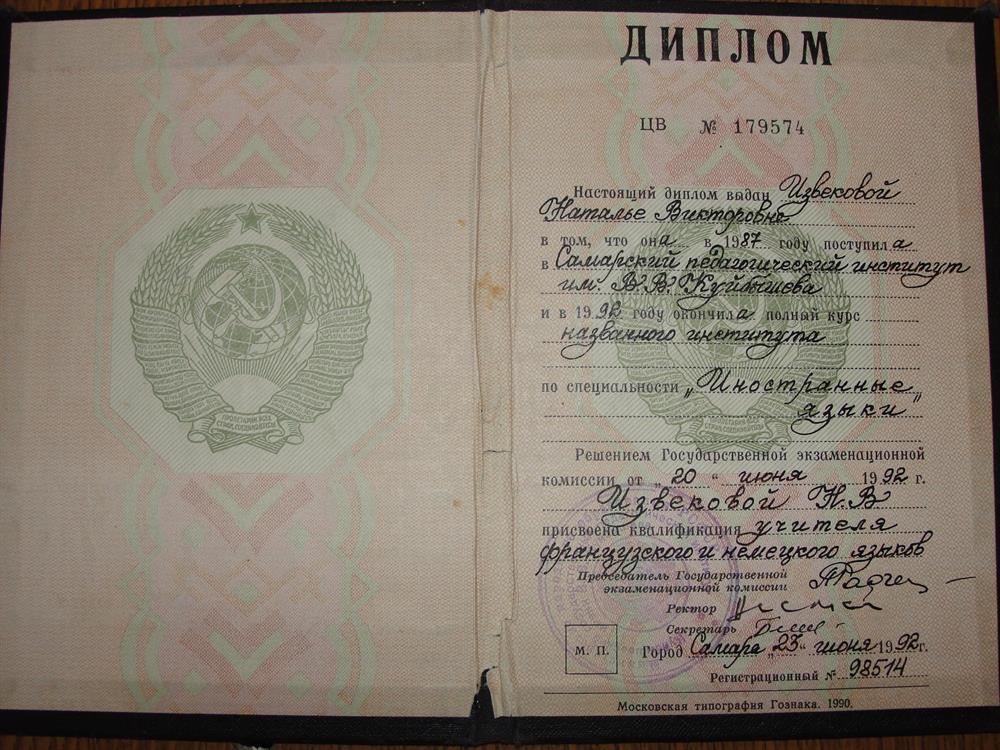 ПРОЛЕТАРИИ ВСЕХ
СТРАН, СОЕДИНЯЙТЕСЬ!
ДИПЛОМ
ЦВ № 179574
Настоящий диплом выдан Извековой
Наталье Викторовне
в том, что она в 1987 году поступила
в Самарский педагогический институт
им. В.В. Куйбышева
и в 1992 году окончила полный курс
названного института
по специальности „Иностранные
языки"
Решением Государственной экзаменационной
комиссии от „20" июня 1992 г.
Извековой Н.В
присвоена квалификация учителя
французского и немецкого языков
Председатель Государственной
экзаменационной комиссии
Ректор
Секретарь
М. П.
Город Самара „23" июня 1992г.
Регистрационный № 98514
Московская типография Гознака. 1990.